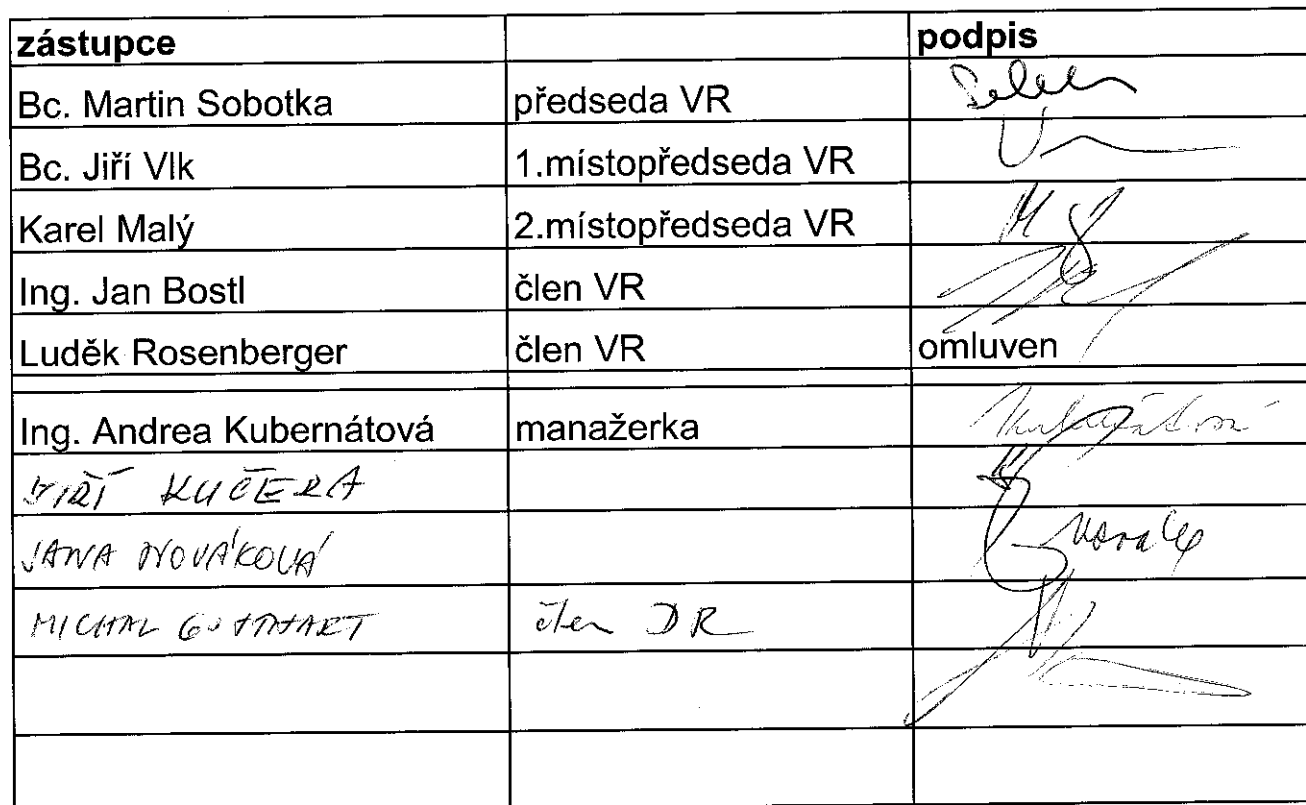 zástupce podpis
Bc. Martin Sobotka předseda VR
Bc. Jiří Vlk 1.místopředseda VR
Karel Malý 2.místopředseda VR
Ing. Jan Bostl člen VR
Luděk Rosenberger člen VR omluven
Ing. Andrea Kubernátová manažerka Kubernátová
JIŘÍ KUČERA
JANA NOVÁKOVÁ
MICHAL člen DR